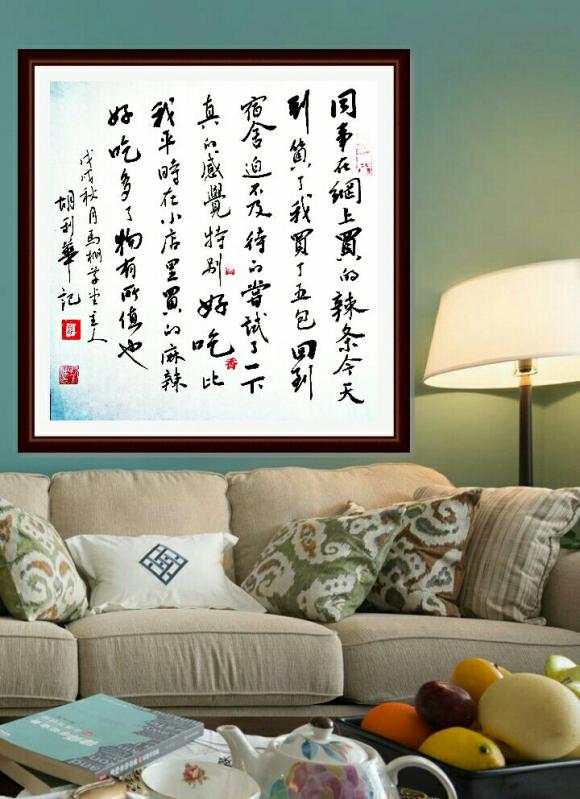 同事在網上買的辣条今天
到貨了我買了五包回到
宿舍迫不及待的嘗試了一下
真的感覺特别好吃比
香
我平時在小店里買的麻辣
好吃多了物有所值也
戊戌秋月馬棚草堂主人
胡利華記